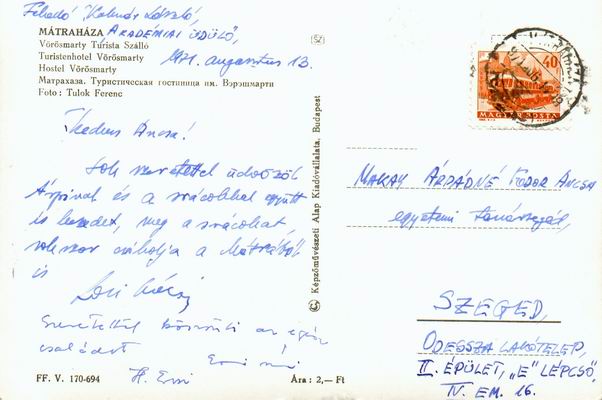 Feladó Kalmár László,
MÁTRAHÁZA AKADÉMIAI ÜDÜLŐ,
Vörösmarty Turista Szálló
Turistenhotel Vörösmarty 1971. augusztus 13.
Hostel Vörösmarty
Матрахаза. Туристическая гостиница им. Вэрэшмарти
Foto: Tulok Ferenc
Kedves Ancsa!
Sok szeretettel üdvözöl
Árpival és a srácokkal együtt
is kezedet, meg a srácokat,
sokszor csókolja a Mátrából
is
Laci bácsi
Szeretettel köszönti az egész
családot Erzsi néni
FF. V. 170-694
Ára: 2,— Ft
Képzőművészeti Alap Kiadóvállalata, Budapest
40
MAGYAR POSTA
MAKAY ÁRPÁDNÉ FODOR ANCSA
egyetemi tanársegéd,
SZEGED,
ODESSZA LAKÓTELEP,
II. ÉPÜLET, „E" LÉPCSŐ,
IV. EM. 16.